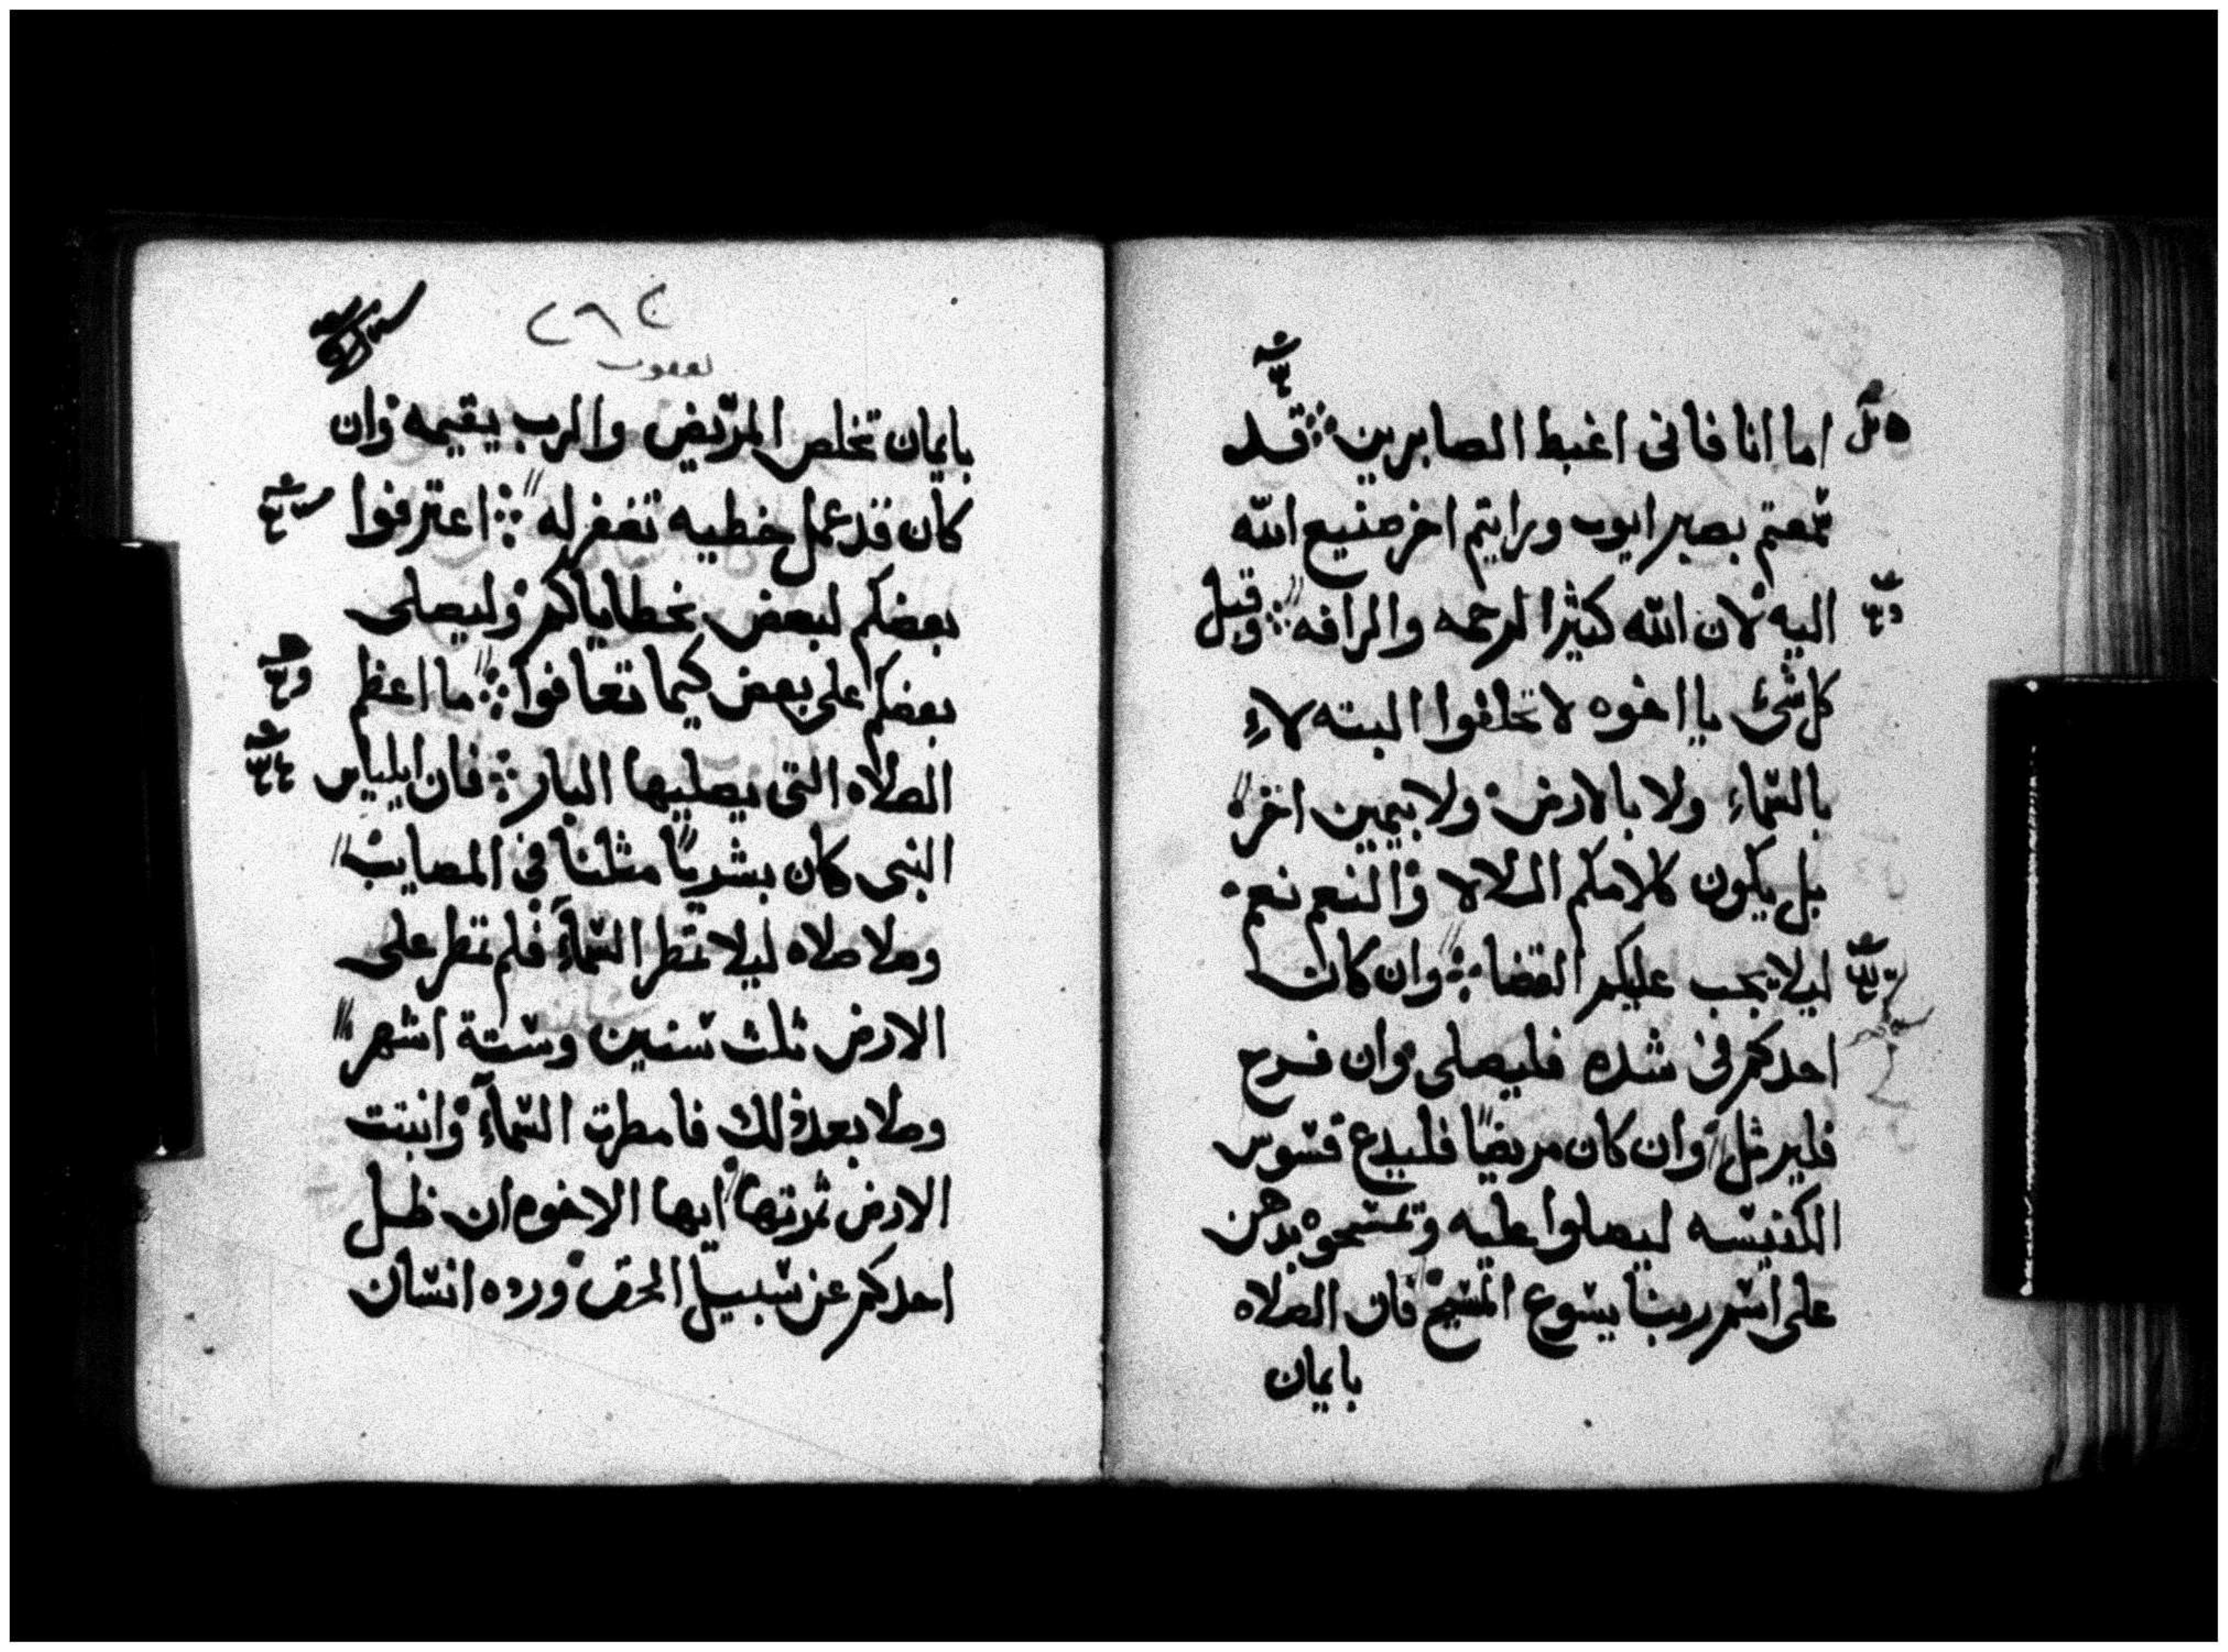 اما انا فانى اغبط الصابرين قد
سمعتم بصبر ايوب ورايتم اخر صنيع الله
اليه لان الله كثير الرحمه والرافه وقبل
كل شئ يا اخوه لا تحلفوا البته لاء
بالسماء ولا بالارض ولا بيمين اخر
بل يكون كلامكم اللا لا والنعم نعم
ليلا يجب عليكم القضا وان كان
احدكم فى شده فليصلى وان فرح
فليرتل وان كان مريضًا فليدع قسوس
الكنيسه ليصلوا عليه وتمسحوه بدهن
على اسم ربنا يسوع المسيح فان الصلاه
بايمان
٢٩٢
يعقوب
بايمان تخلص المريض والرب يقيمه وان
كان قد عمل خطيه تغفر له اعترفوا
بعضكم لبعض بخطاياكم وليصلى
بعضكم على بعض كيما تعافوا ما اعظم
الصلاه التى يصليها البار فان ايلياس
النبى كان بشريًا مثلنا فى المصايب
وصلا صلاه ليلا تمطر السمآء فلم تمطر على
الارض ثلث سنين وستة اشهر
وصلا بعد ذلك فامطرت السمآء وانبتت
الارض ثمرتها ايها الاخوه ان ظل
احدكم عن سبيل الحق ورده انسان